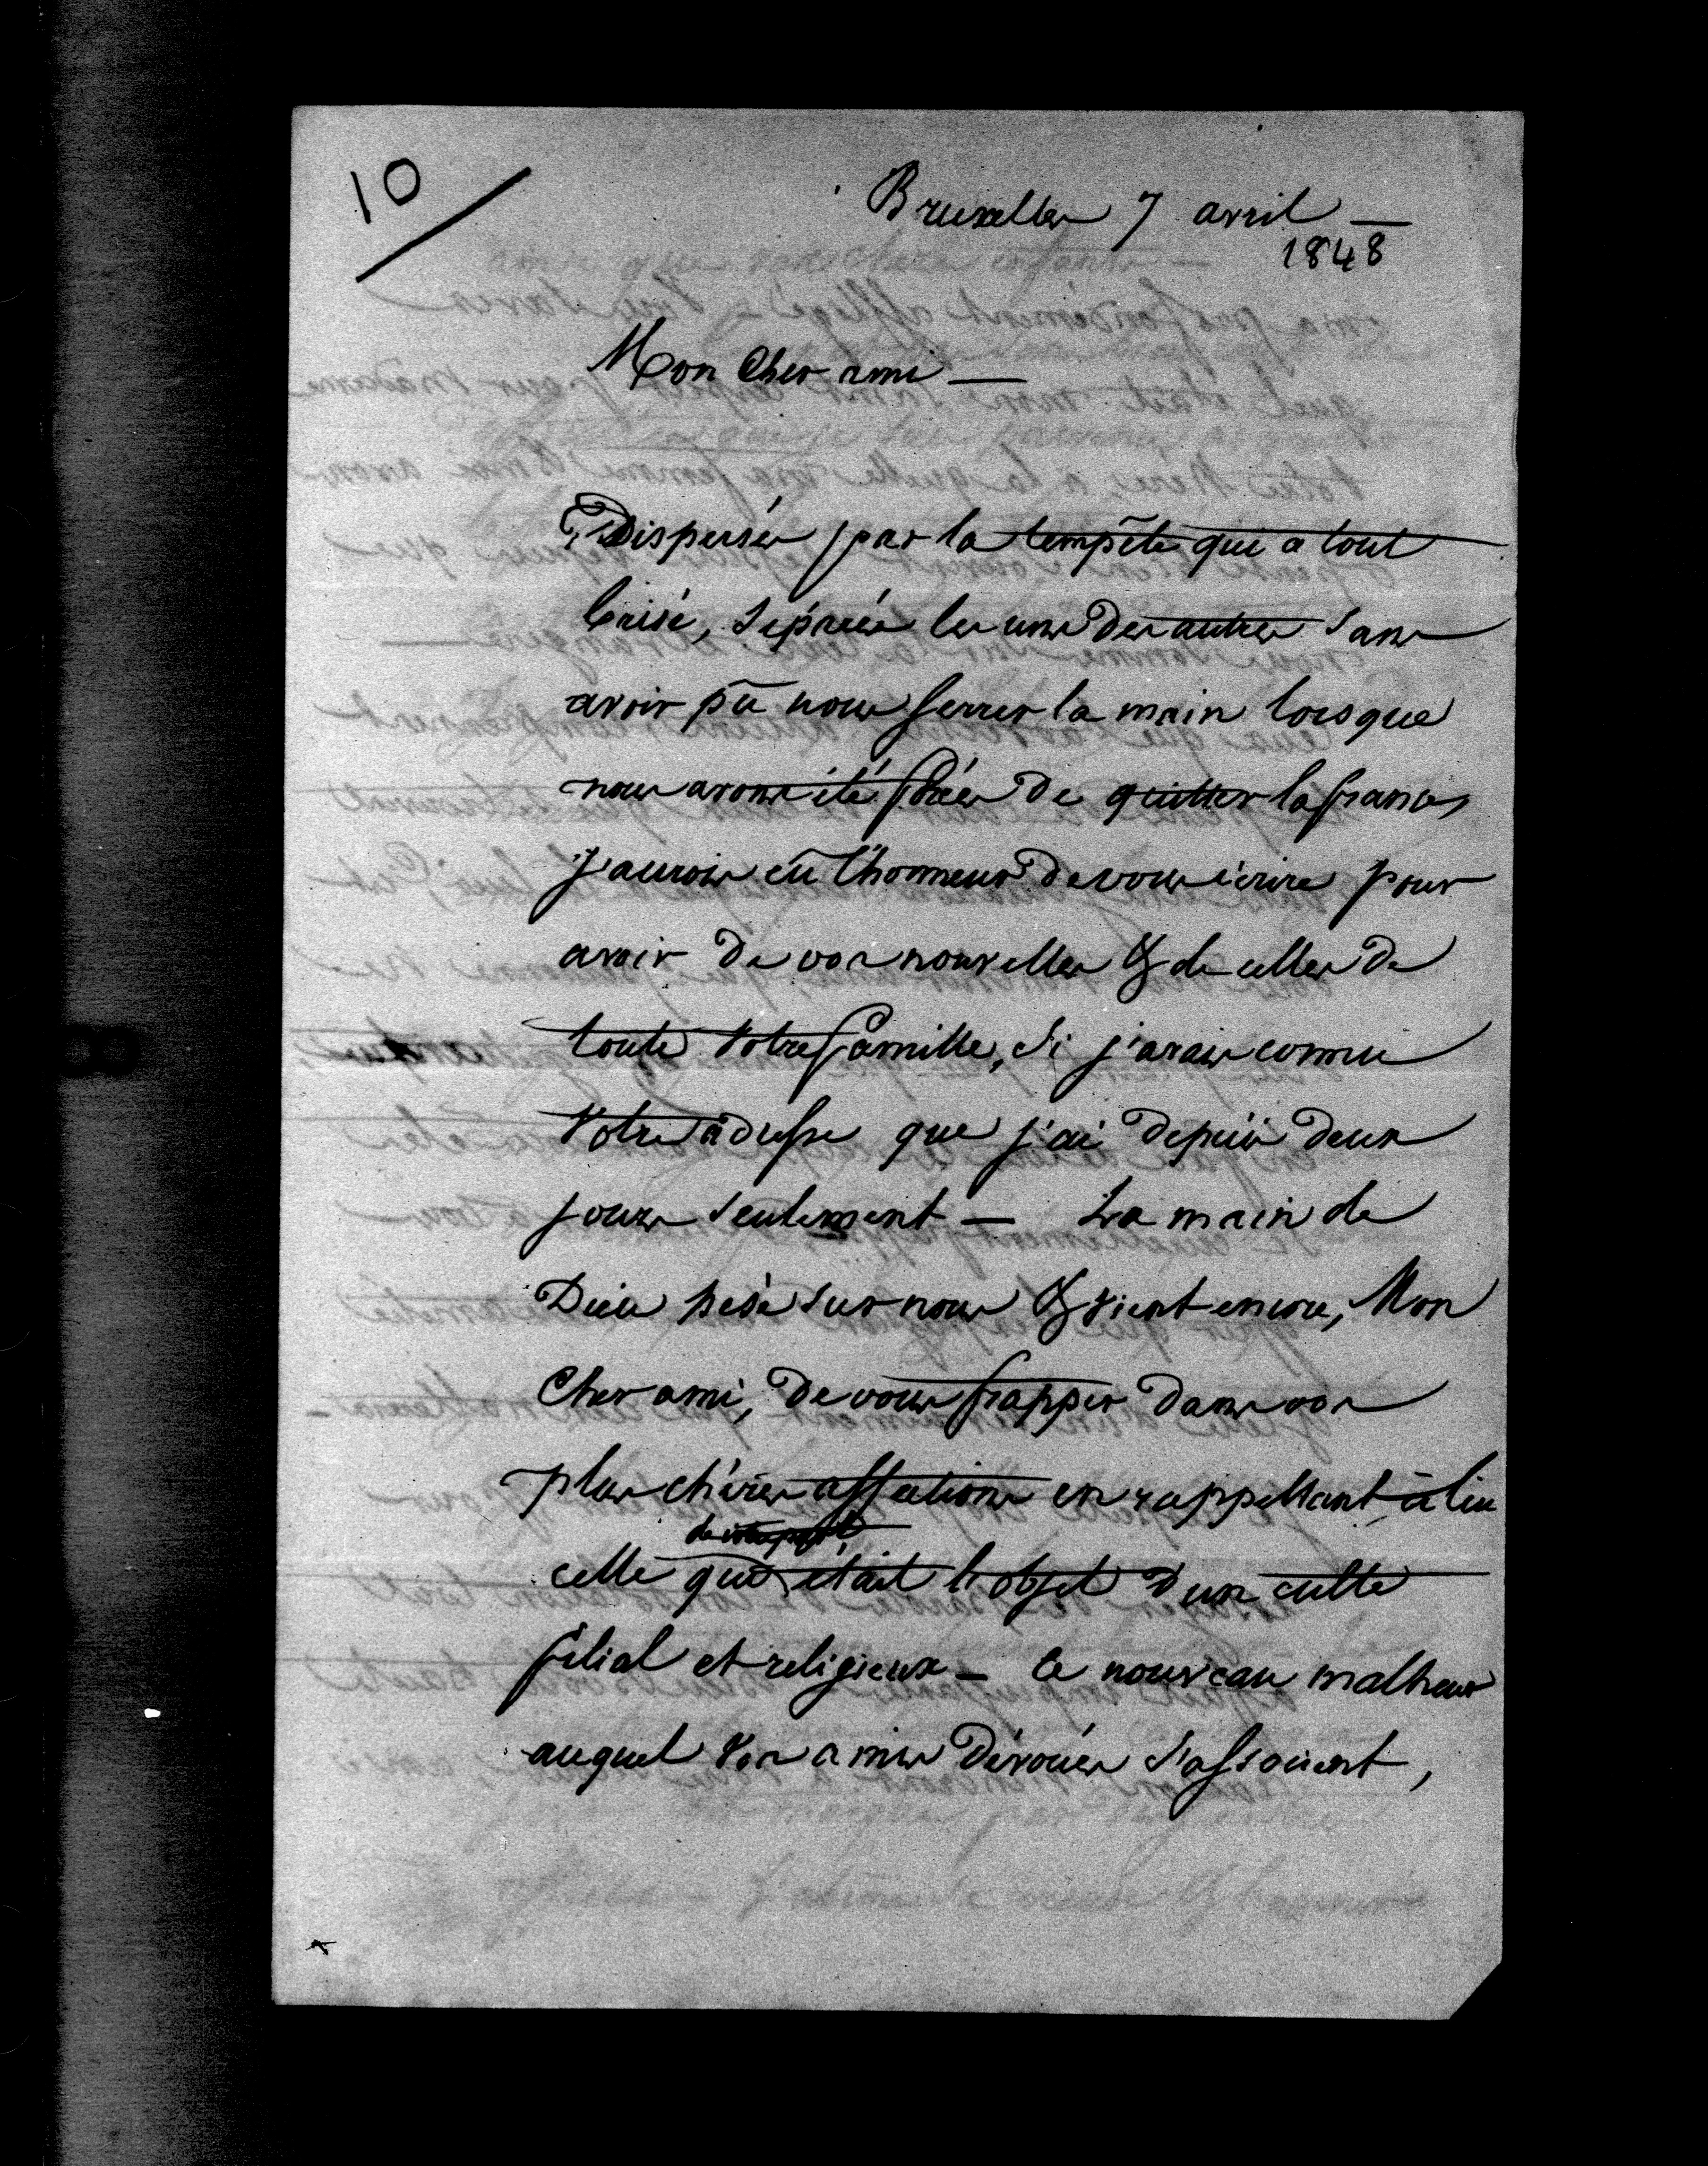 10
Bruxelles 7 avril —
1848
Mon Cher ami —
Dispersés par la tempête qui a tout
brisé, séparés les uns des autres sans
avoir pû nous serrer la main lorsque
nous avons été forcés de quitter la france,
j'aurois eû l'honneur de vous écrire pour
avoir de vos nouvelles & de celles de
toute votre famille, si j'avais connu
votre adresse que j'ai depuis deux
jours seulement — La main de
Dieu pèse sur nous & vient encore, Mon
Cher ami, de vous frapper dans vos
plus chères affections en rappellant à lui
de votre part,
celle qui était l'objet d'un culte
filial et religieux — Ce nouveau malheur
auquel vos amis dévoués s'associent,